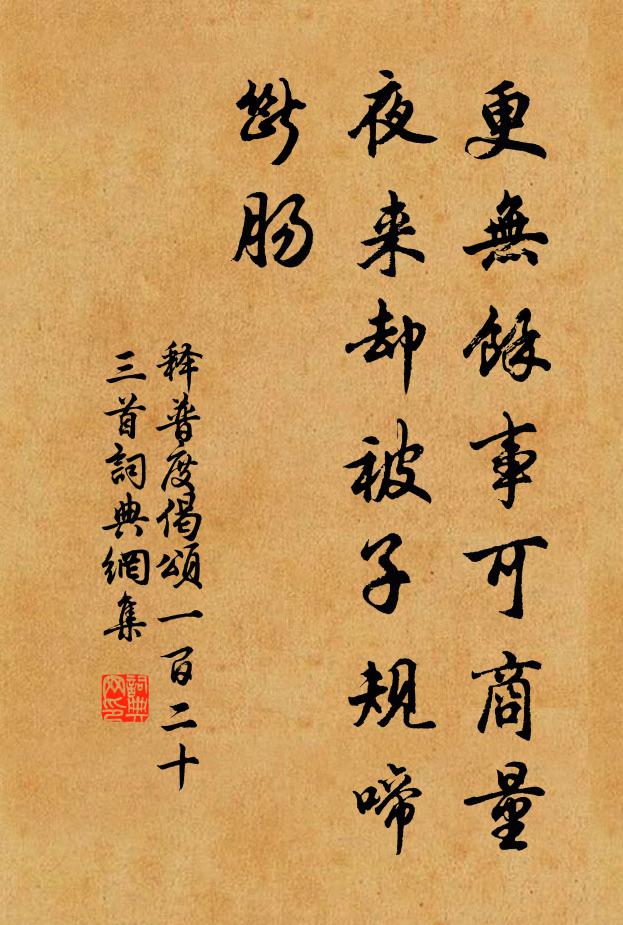 更無餘事可商量
夜来却被子規啼
斷肠
释普度偈頌一百二十
三首詞典網集
詞典
网印